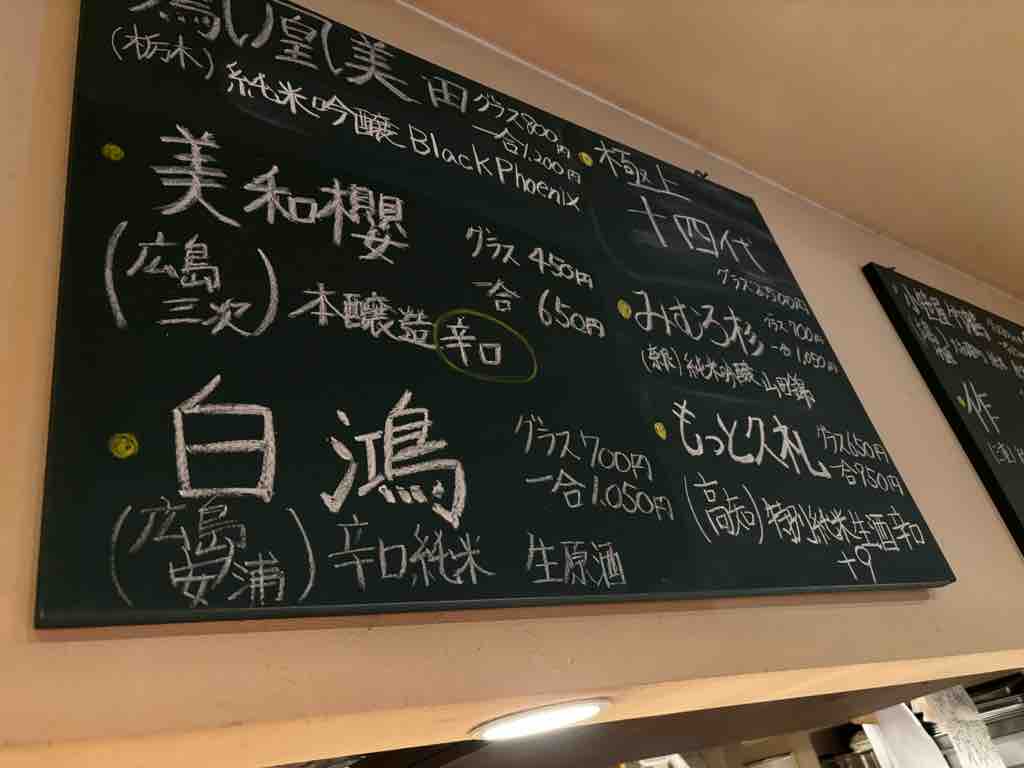 鳳凰美田
グラス800円
一合1,200円
(栃木)
純米吟醸 Black Phoenix
美和櫻
(広島
三次)
グラス450円
一合 650円
本醸造 辛口
白鴻
グラス700円
一合1.050円
(広島
安浦)
辛口純米 生原酒
極上
十四代
みむろ杉
グラス700円
一合1,050円
純米吟醸 山田錦
もっと久礼
グラス650円
一合950円
(高知)
特別純米生酒辛口
+9
作